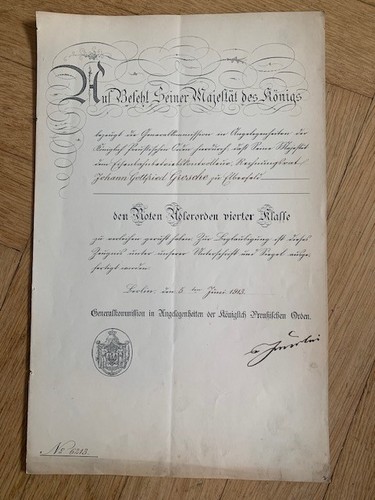 Auf Befehl Seiner Majestät des Königs
bezeugt die Generalkommission in Angelegenheiten der
Königlich Preußischen Orden hierdurch, daß Seine Majestät
dem Eisenbahnbetriebskontrolleur, Rechnungsrat
Johann Gottfried Giersche zu Elberfeld
den Roten Adlerorden vierter Klasse
zu verleihen geruht haben. Zur Beglaubigung ist dieses
Zeugnis unter unserer Unterschrift und Siegel ausge-
fertigt worden.
Berlin, den 5ten Juni 1913.
Generalkommission in Angelegenheiten der Königlich Preußischen Orden.
No 6213